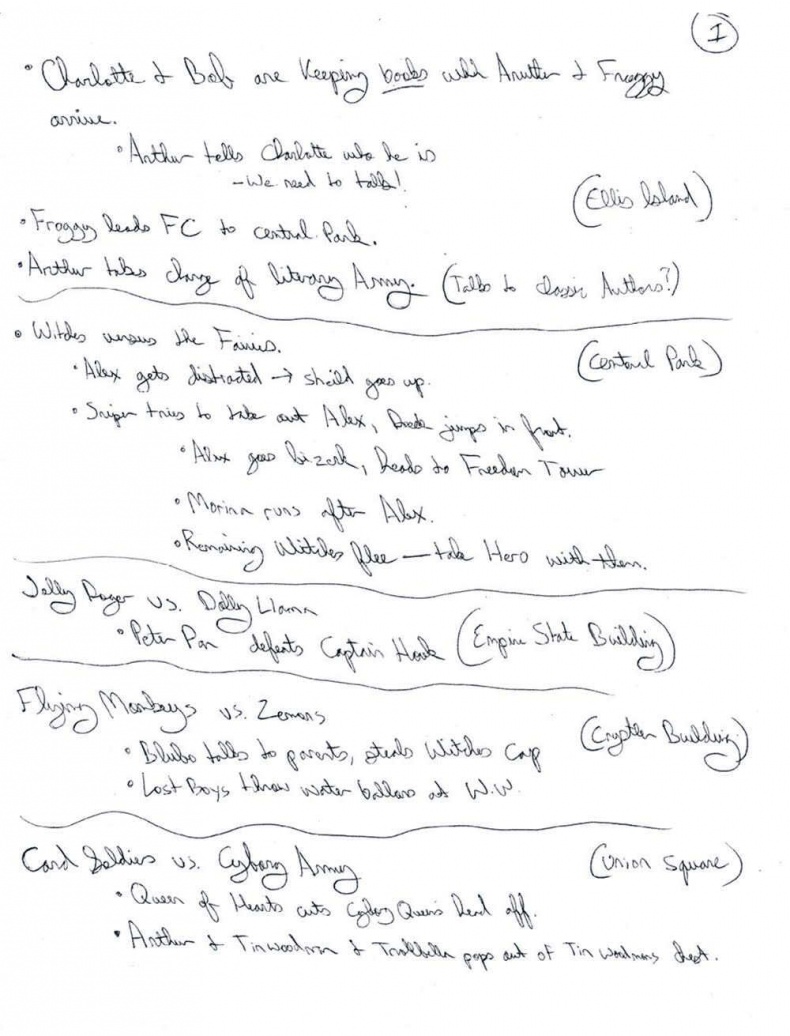 I
• Charlotte & Bob are keeping books until Arthur & Froggy
arrive.
• Arthur tells Charlotte who he is
- We need to talk!
(Ellis Island)
• Froggy leads FC to central Park.
• Arthur takes charge of literary Army. (Talks to classic Authors?)
• Witches versus the Fairies.
(Central Park)
• Alex gets distracted → sheild goes up.
• Sniper tries to take out Alex, jumps in front.
• Alex goes bizerk, Heads to Freedom Tower
• Morina runs after Alex.
• Remaining Witches flee — take Hero with them.
Jolly Roger vs. Dolly Llama
• Peter Pan defeats Captain Hook (Empire State Building)
Flying Monkeys vs. Zemons
(Crystler Building)
• Blubo talks to parents, steals Witches Cap
• Lost Boys throw water ballons at W.W.
Card Soldiers vs. Cyborg Army
(Union Square)
• Queen of Hearts cuts Cyborg Queen's head off.
• Arthur & Tinwoodman & Trollbella pops out of Tin woodmans chest.